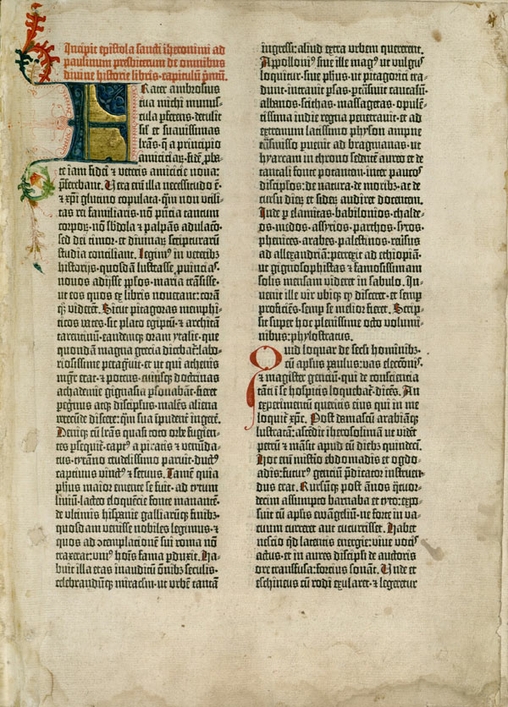 Incipit epistola sancti iheronimi ad
paulinum presbiterum de omnibus
divine historie libris. capitulū pmū.
Frater ambrosius
tua michi munus-
cula pferens· detulit
sil' et suavissimas
lrās· q̄ a principio
amiciciaꝝ· fidē pba-
te iam fidei ⁊ veteris amicicie nova:
pferebant. Vera eni illa necessitudo ē·
⁊ xpi glutino copulata· qm̄ non utili-
tas rei familiaris· nō pn̄tia tantum
corporꝫ· nō sbdola ⁊ palpās adulaco·
sed dei timor· et divinaꝝ scripturarū
studia conciliant. Legimꝰ in veteribꝫ
historijs· quosdā lustrasse puincias·
novos adijsse pplos· maria trāsisse·
ut eos quos ex libris noverant: corā
qꝫ viderēt. Sicut pitagoras memphi-
ticos vates· sic plato egiptū· ⁊ architā
tarentinū· eandemqꝫ oram ytalie· que
quondā magna grecia dicebat̄: labo-
riosissime peragravit· et ut qui athenis
mgr̄ erat· ⁊ potens· cuiusqꝫ doctrinas
achademie gignasia psonabāt· fieret
peginus atqꝫ discipulus· malēs aliena
verecunde discere: qm̄ sua īpudent̄ ingerē.
Deniqꝫ cū lrās quasi toto orbe fugien-
tes psequit̄· captꝰ a piratis ⁊ venūda-
tus· tyrāno crudelissimo paruit· ductꝰ
captivus vinctꝰ ⁊ servus. Tamē quia
phus maior emente se fuit· ad tytum
liviū· lacteo eloquētie fonte manantē·
de ultimis hispanie galliarumqꝫ finibꝫ·
quosdam venisse nobiles legimus·⁊
quos ad ꝯtemplationē sui roma nō
traxerat: uniꝰ hoīs fama pduxit. Ha-
buit illa etas inauditū oībꝫ seculis·
celebrandūqꝫ miraclm· ut urbē tantā
ingressi: aliud extra urbem quererent.
Appolloniꝰ sive ille magꝰ ut vulgus
loquitur· sive phus· ut pitagorici tra-
dunt· intravit psas· ptrāsivit caucasū·
albanos· scithas· massagetas· opulē-
tissima indie regna penetravit· et ad
extremum latissimo physon ampne
trāsmisso puenit ad bragmanas· ut
hyarcam in throno sedentē aureo et de
tantali fonte potantem· inter paucos
discipulos· de natura· de moribꝫ· ac de
cursu dieꝝ et sideꝝ audiret docentem.
Inde p elamitas· babilonios· chalde-
os· medos· assyrios· parthos· syros·
phenices· arabes· palestinos· reūsus
ad allexandriā: perrexit ad ethiopiā·
ut gignosophistas ⁊ famosissimam
solis mensam videret in sabulo. In-
venit ille vir ubiqꝫ qd̄ disceret· et semp
proficiēs· semp se melior fieret. Scrip-
sit super hoc plenissime octo volumi-
nibus: phylostratus.
Quid loquar de secli hominibꝫ·
cū apsus paulus: vas electōnis·
⁊ magister gentiū· qui de consciencia
tāti ī se hospitis loquebat̄· dicēs. An
experimentū queritis eius qui in me
loquit̄ xpc. Post damascū arabiāqꝫ
lustratā: ascēdit iherosolimā ut vidēt
petrū ⁊ māsit apud eū diebꝫ quindecī.
Hoc enī misterio ebdomadis et ogdo-
adis: futurꝰ genciū pdicator instruen-
dus erat. Rursūqꝫ post ānos qtuor-
decim assumpto barnaba et tyto: expo-
suit cū aplis evangeliū· ne forte in va-
cuum curreret aut cucurrisset. Habet
nescio qd latentis energie: vive vocis
actus· et in aures discipli de auctoris
ore transfusa: forcius sonāt. Unde et
eschineus cū rodi exularet· ⁊ legeretur